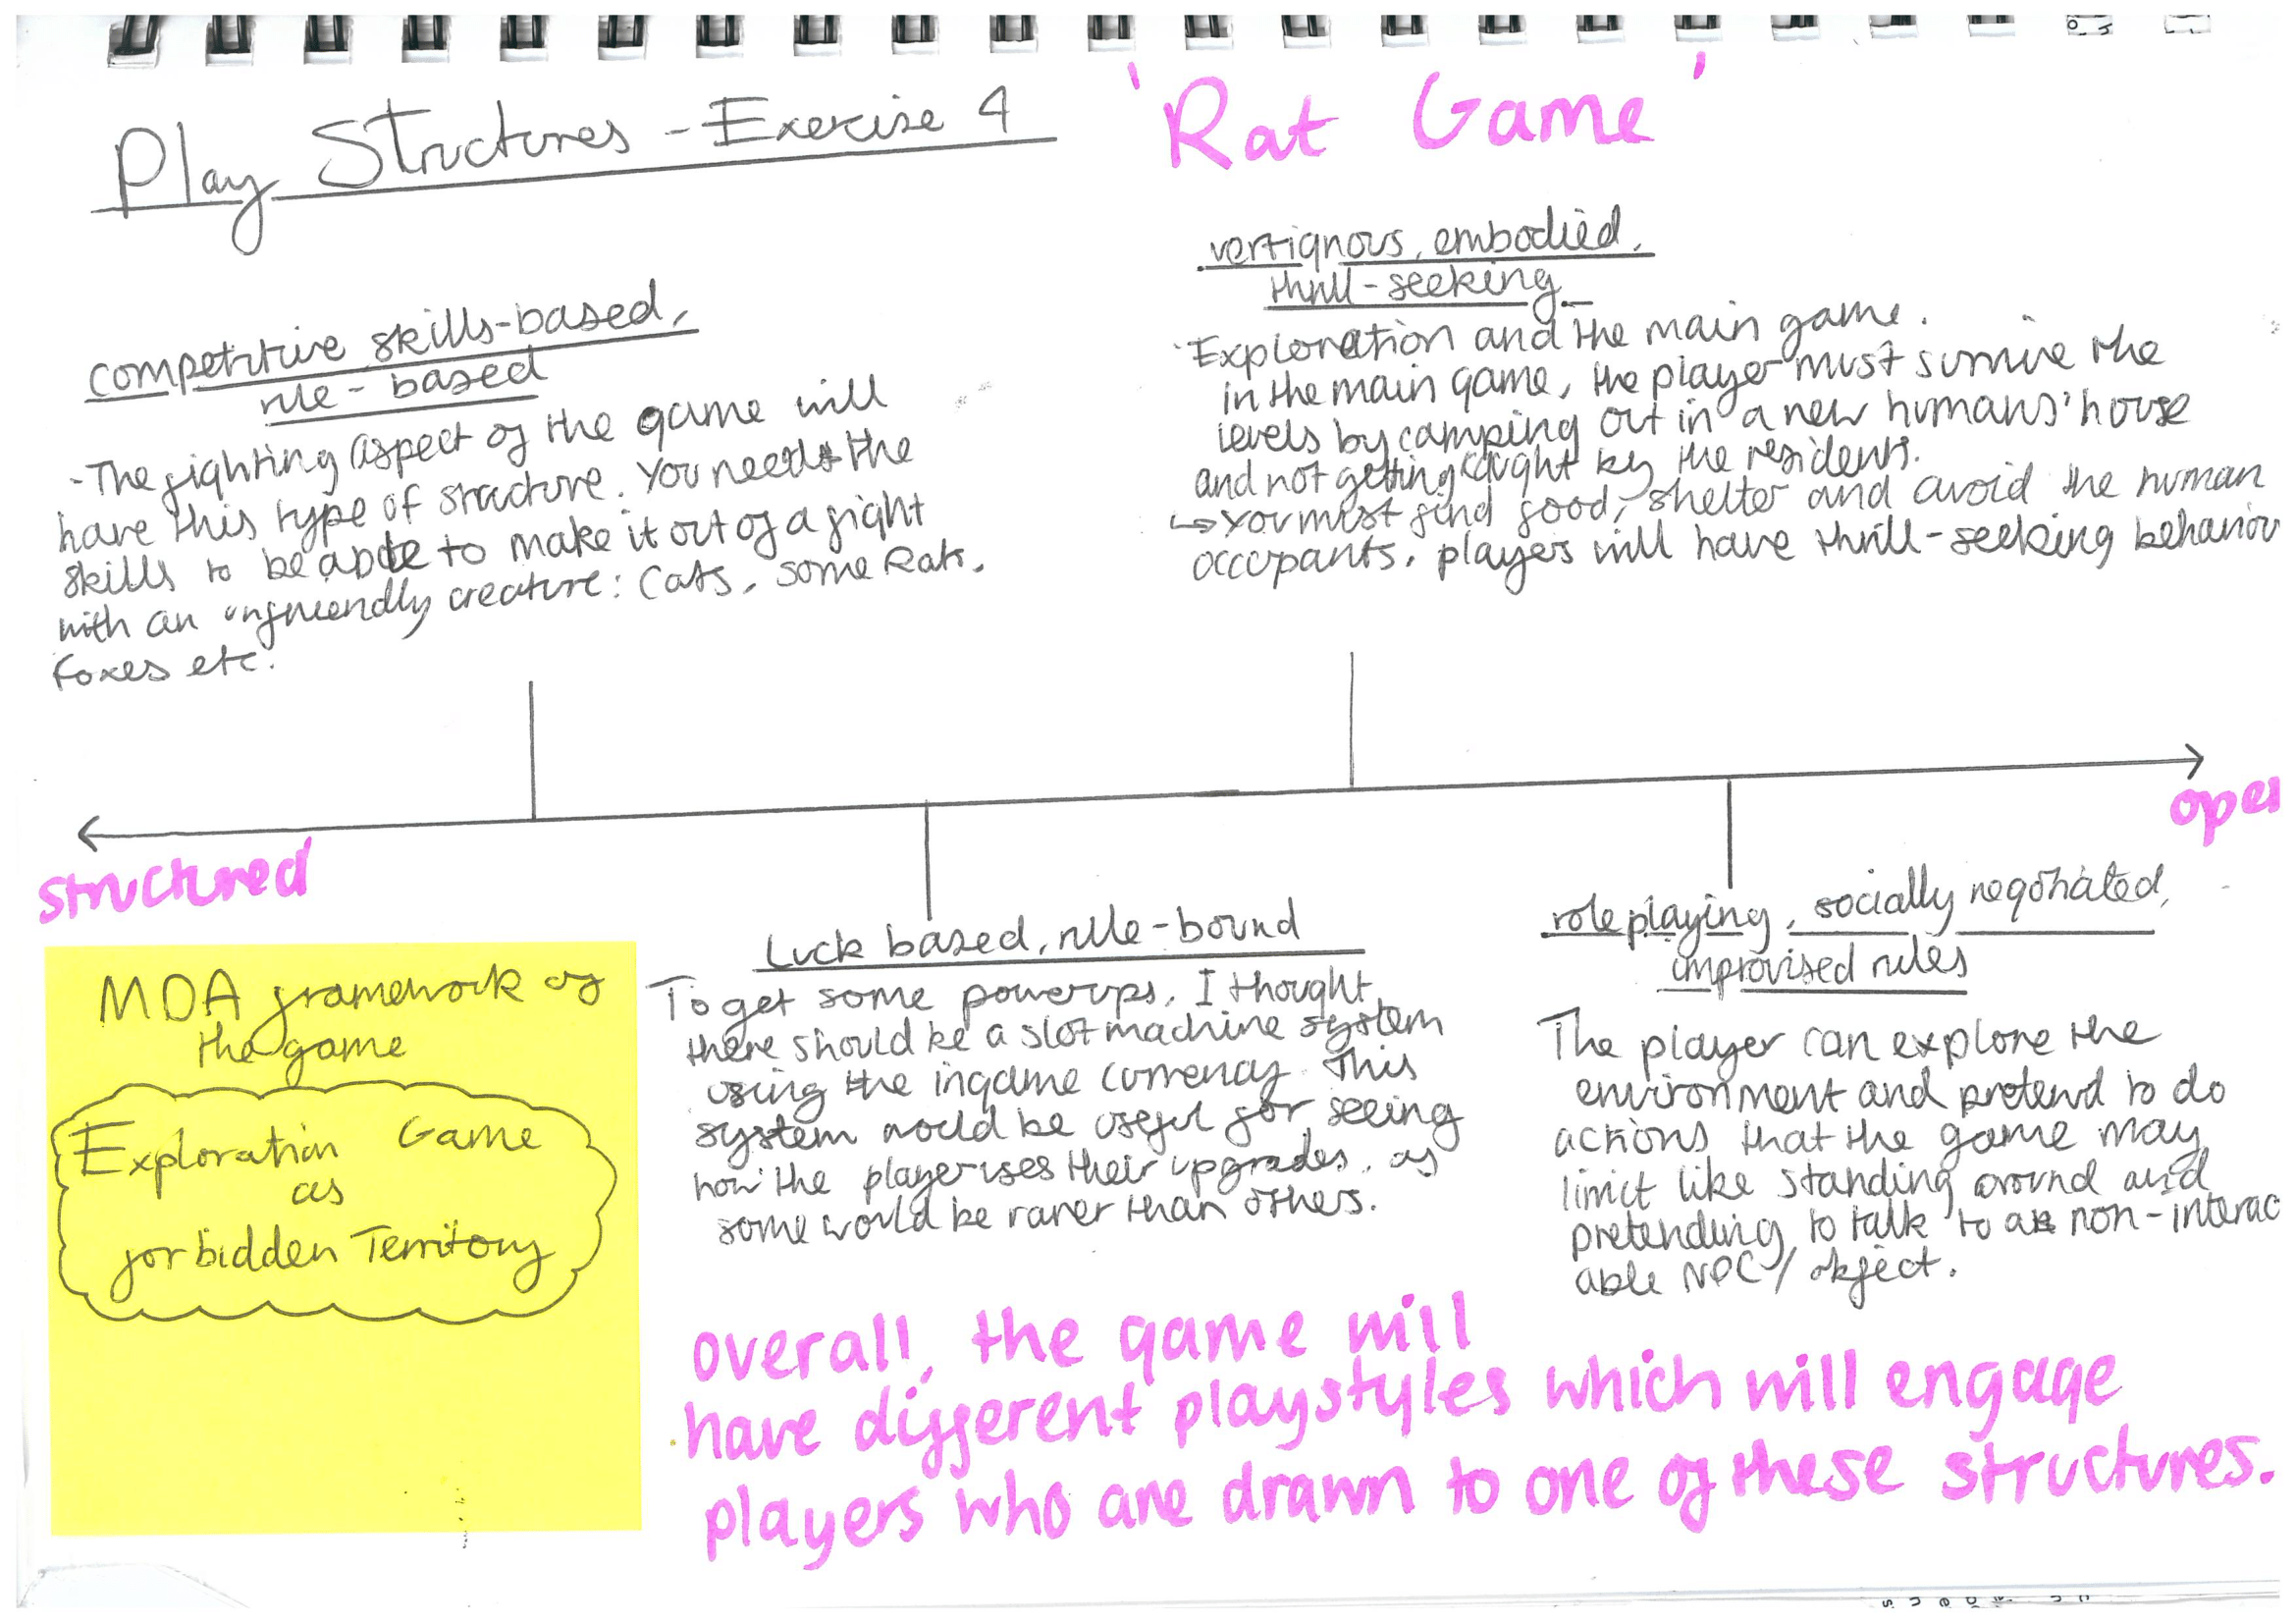 Play Structures - Exercise 4
'Rat Game'
competitive skills-based,
rule-based
- The fighting aspect of the game will
have this type of structure. You need the
skills to be able to make it out of a fight
with an unfriendly creature: Cats, some Rats,
Foxes etc.
vertignous, embodied,
thrill-seeking
Exploration and the main game.
in the main game, the player must survive the
levels by camping out in a new humans' house
and not getting caught by the residents.
↳ You must find food, shelter and avoid the human
occupants. players will have thrill-seeking behaviou
structured
open
MDA framework of
the game
Exploration Game
as
forbidden Territory
Luck based, rule-bound
To get some powerups, I thought
there should be a slot machine system
using the ingame currency. This
system would be useful for seeing
how the player uses their upgrades, as
some would be rarer than others.
roleplaying, socially negotiated,
improvised rules
The player can explore the
environment and pretend to do
actions that the game may
limit like standing around and
pretending to talk to a non-interac
able NPC/object.
overall, the game will
have different playstyles which will engage
players who are drawn to one of these structures.